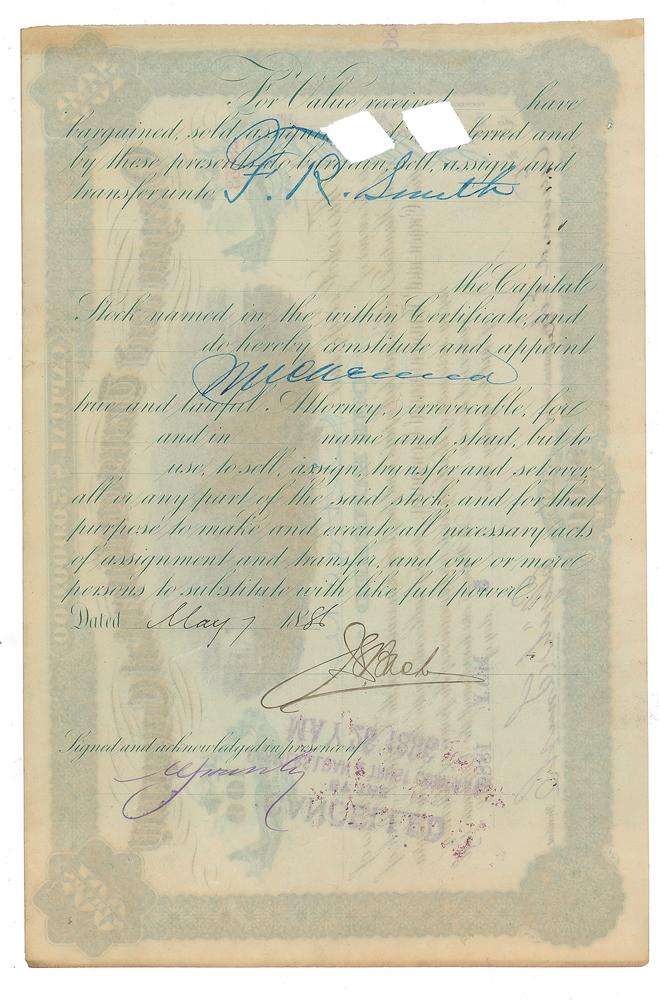 For Value received have
bargained, sold, assign ferred and
by these presents do bargain, sell, assign and
transfer unto F. R. Smith
the Capital
Stock named in the within Certificate, and
do hereby constitute and appoint
true and lawful Attorney, irrevocable, for
and in name and stead, but to
use, to sell, assign, transfer and set over
all or any part of the said stock, and for that
purpose to make and execute all necessary acts
of assignment and transfer, and one or more
persons to substitute with like full power.
Dated May 7 1886
Signed and acknowledged in presence of
MAY 26 1886
CANCELLED